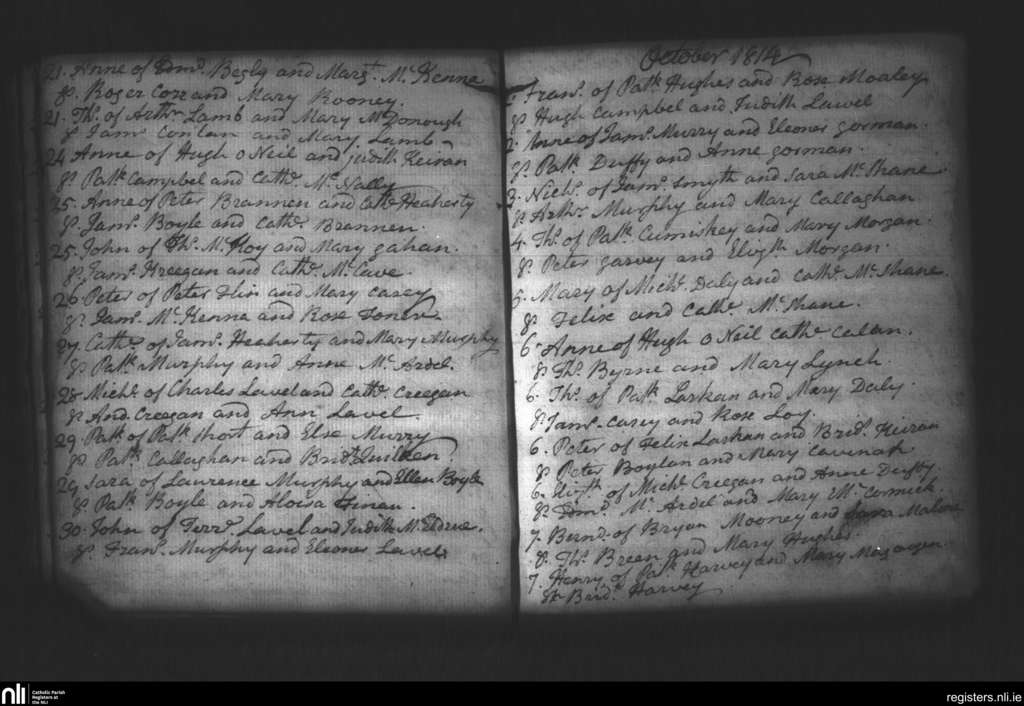 21. Anne of Edmd. Begly and Margt. Mc Kenne
Sp. Roger Corr and Mary Rooney.
21. Ths. of Arthr. Lamb and Mary McDonough
Sp. Jams. Conlan and Mary Lamb
24 Anne of Hugh o Neil and Judith Keiran
Sp. Patk. Campbel and Cathe. Mc Nally
25. Anne of Peter Brannen and Cathe. Heaherty
Sp. Jams. Boyle and Cathe. Brannen.
25. John of Ths. Mc and Mary gahan.
Sp. Jams. Kreegan and Cathe. Mc Cave.
26 Peter of Peter and Mary Casey
Sp. Jams. Mc Kenna and Rose
27. Cathe. of Jams. Heaherty and Mary Murphy
Sp. Patk. Murphy and Anne Mc Ardel.
28 Michl. of Charles Lavel and Cathe. Creegan
Sp. And. Creegan and Ann Lavel
29. Patk. of Patk. Short and Else Murry
Sp. Patk. Callaghan and Bridt. Quilken.
29. Sara of Lawrence Murphy and Ellen Boyle
Sp. Patk. Boyle and Aloisa
30. John of Terre. Lavel and Judith Mc
Sp. Frans. Murphy and Eleoner Lavel
October 1814
Frans. of Patk. Hughes and Rose Moaley
Sp. Hugh Campbel and Judith Lavel
2. Anne of Jams. Murry and Eleoner gorman.
Sp. Patk. Duffy and Anne gorman.
3. Nichs. of Jams. Smyth and Sara Mc Shane
Sp. Arthr. Murphy and Mary Callaghan
4. Ths. of Patk. Cumiskey and Mary Morgan.
Sp. Peter garvey and Morgan.
5. Mary of Michl. Daly and Cathe. Mc Shane.
Sp. Felix and Cathe. Mc Shane.
6 Anne of Hugh o Neil Cathe Calan.
Sp. Ths. Byrne and Mary Lynch
6. Ths. of Patk. Larkan and Mary Daly.
Sp. Jams. Casey and Rose Loy.
6. Peter of Felix Larkan and Bridt. Keiran
Sp. Peter Boylan and Mary Cavinah
6. of Michl. Creegan and Anne Duffy.
Sp. Edmd. Mc Ardel and Mary McCormick.
7. Bernd. of Bryan Mooney and Sara Malone
Sp. Ths. Breen and Mary Hughes.
7. Henry of Patk. Harvey and Mary
Sp. Bridt. Harvey
nli
Catholic Parish
Registers at
the NLI
registers.nli.ie